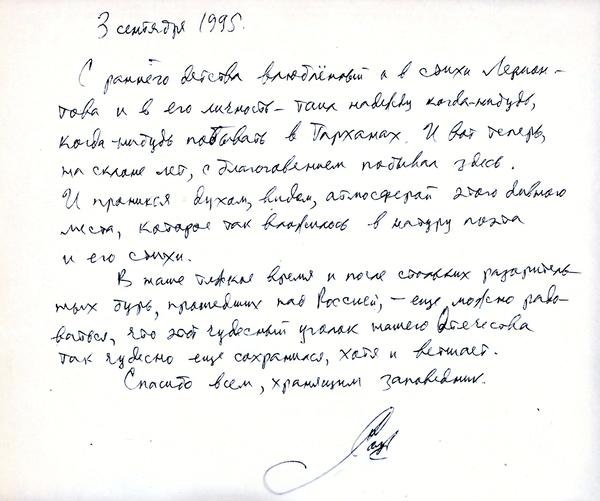 3 сентября 1995.
С раннего детства влюблённый и в стихи Лермон-
това и в его личность – таил надежду когда-нибудь,
когда-нибудь побывать в Тарханах. И вот теперь,
на склоне лет, с благоговением побывал здесь.
И проникся духом, видом, атмосферой этого дивного
места, которое так вложилось в натуру поэта
и его стихи.
В наше тяжкое время и после стольких разоритель-
ных бурь, прошедших над Россией, – ещё можно радо-
ваться, что этот чудесный уголок нашего Отечества
так чудесно ещё сохранился, хотя и ветшает.
Спасибо всем, хранящим заповедник.